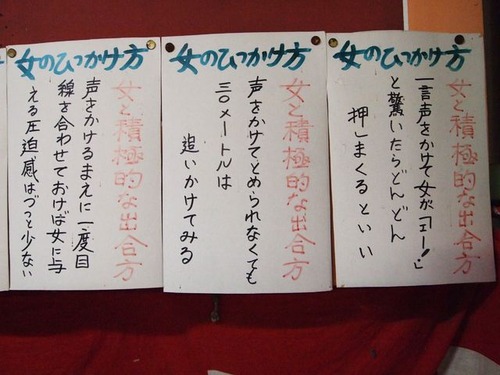 女のひっかけ方
女と積極的な出合方
一言声をかけて女が「エー!」
と驚いたらどんどん
押しまくるといい
女のひっかけ方
女と積極的な出合方
声をかけてとめられなくても
三〇メートルは
追いかけてみる
女のひっかけ方
女と積極的な出合方
声をかけるまえに一度目
線を合わせておけば女に与
える圧迫感はづっと少ない